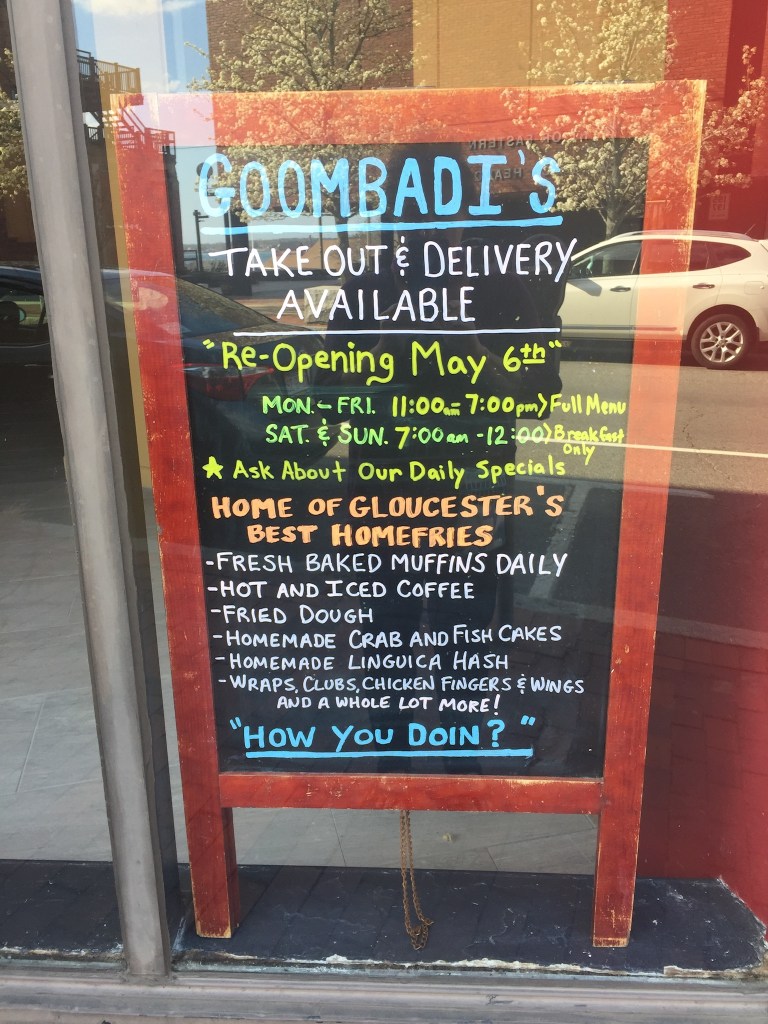 GOOMBADI'S
TAKE OUT & DELIVERY
AVAILABLE
"Re-Opening May 6th"
MON. - FRI. 11:00am - 7:00pm > Full Menu
SAT. & SUN. 7:00am - 12:00 > Breakfast
Only
★ Ask About Our Daily Specials
HOME OF GLOUCESTER'S
BEST HOMEFRIES
-FRESH BAKED MUFFINS DAILY
-HOT AND ICED COFFEE
-FRIED DOUGH
-HOMEMADE CRAB AND FISH CAKES
-HOMEMADE LINGUICA HASH
-WRAPS, CLUBS, CHICKEN FINGERS & WINGS
AND A WHOLE LOT MORE!
"HOW YOU DOIN?"